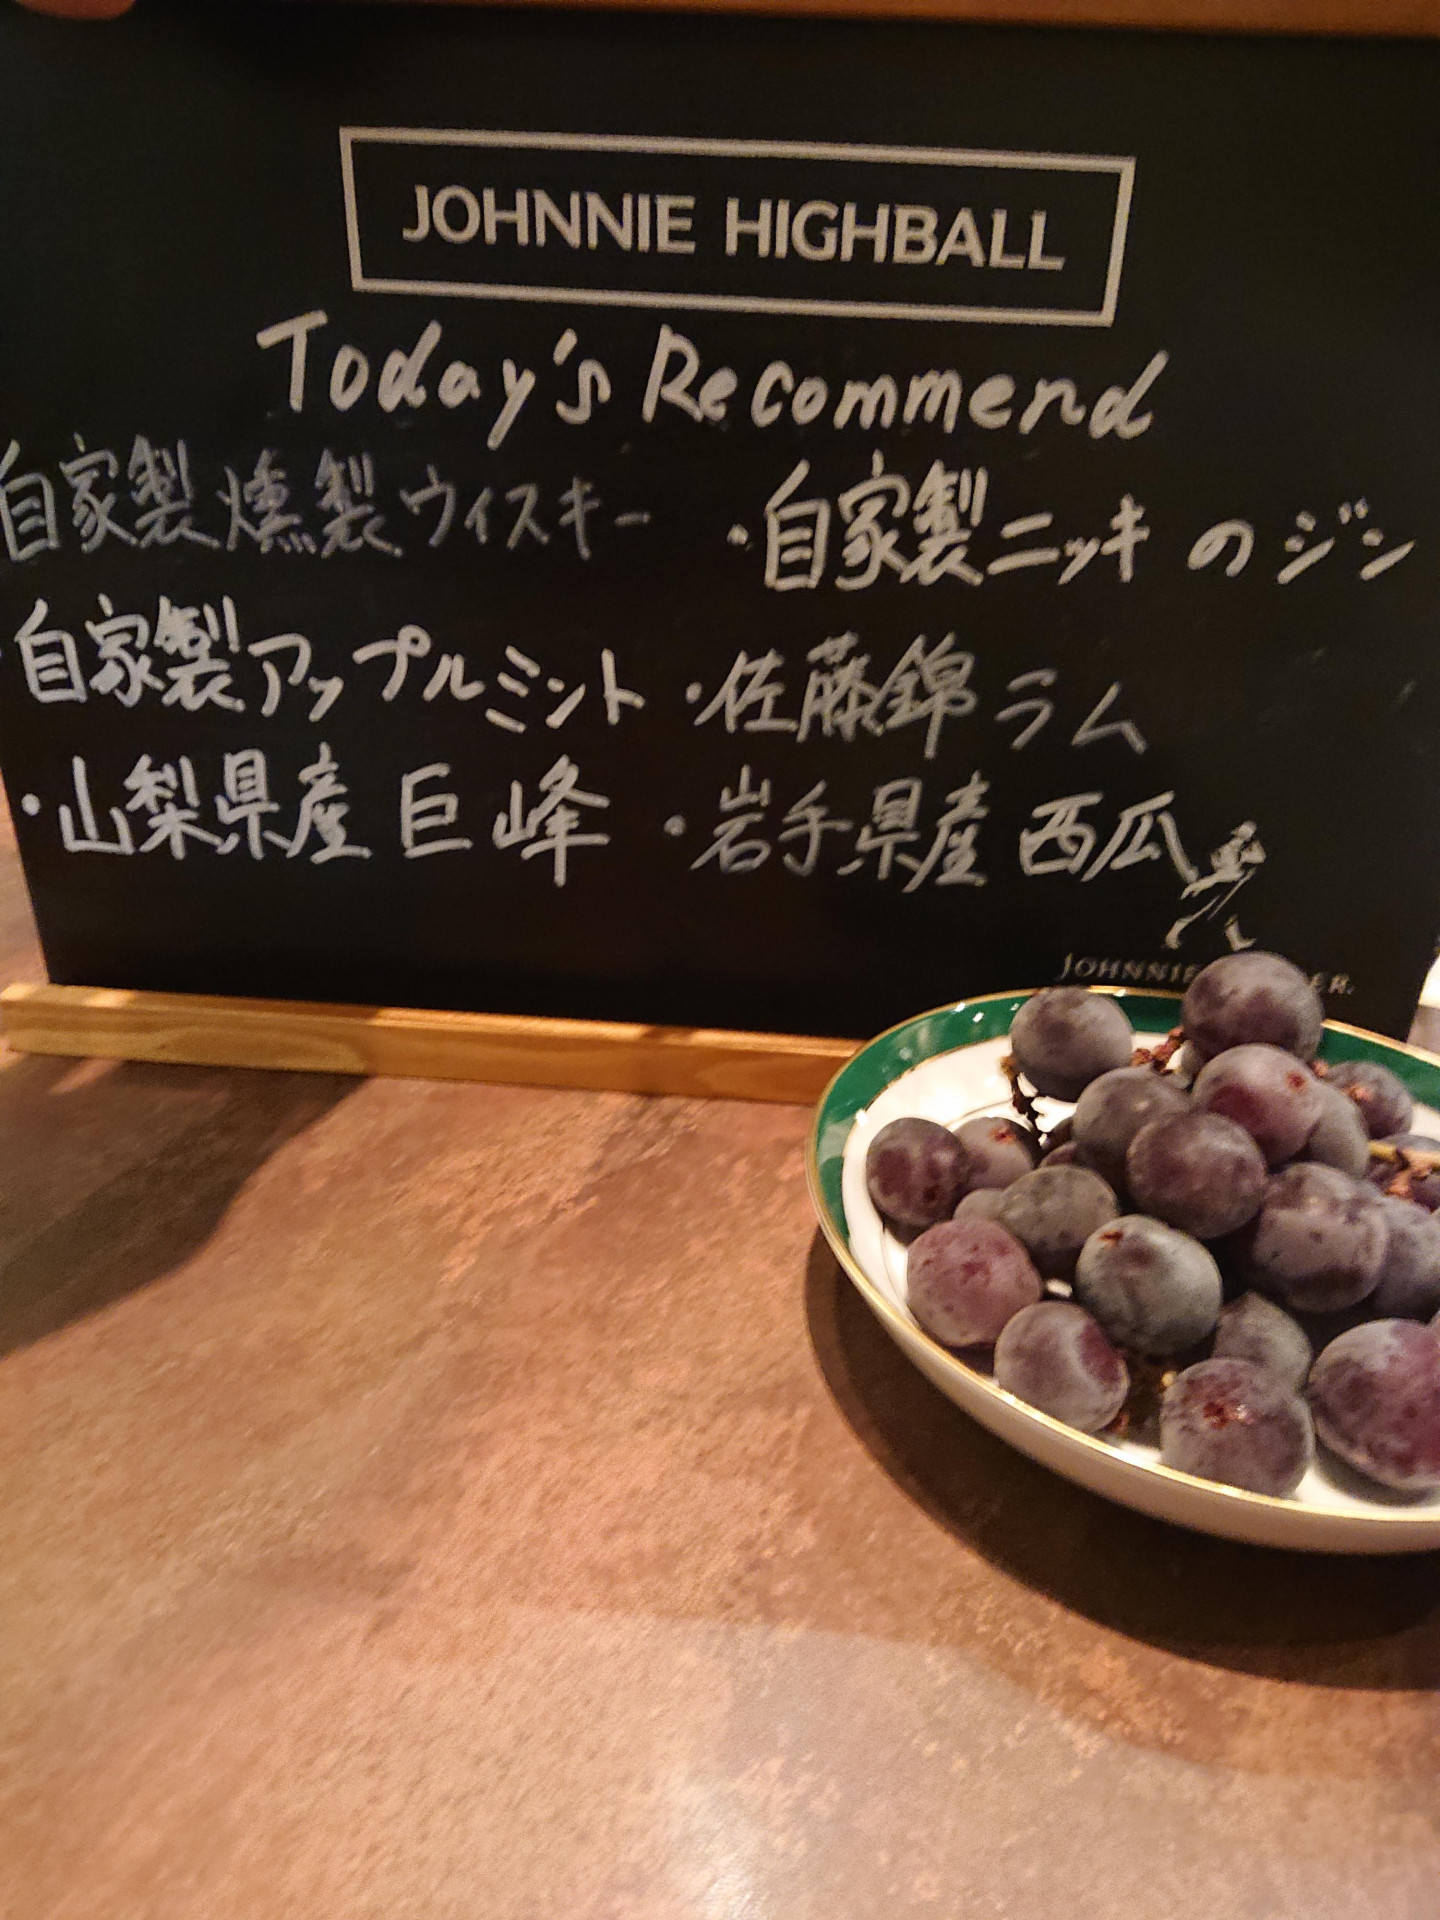 JOHNNIE HIGHBALL
Today's Recommend
自家製燻製ウィスキー ・自家製ニッキのジン
・自家製アップルミント ・佐藤錦ラム
・山梨県産 巨峰 ・岩手県産 西瓜
JOHNNIE